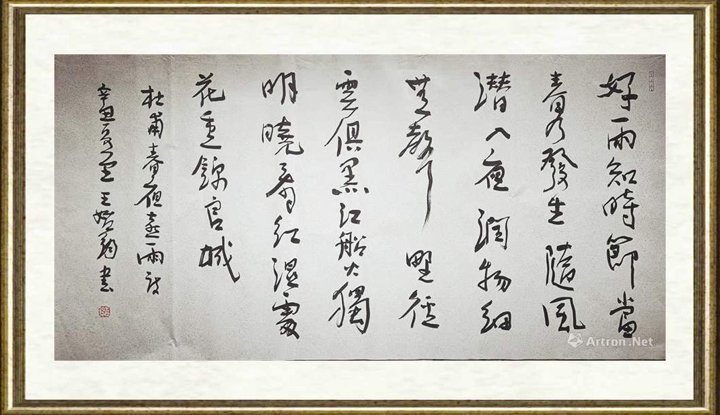 好雨知時節當
春乃發生隨風
潛入夜潤物細
無聲野徑
雲俱黑江船火獨
明曉看紅濕處
花重錦官城
杜甫春夜喜雨詩
辛丑 王 書
Artron.Net